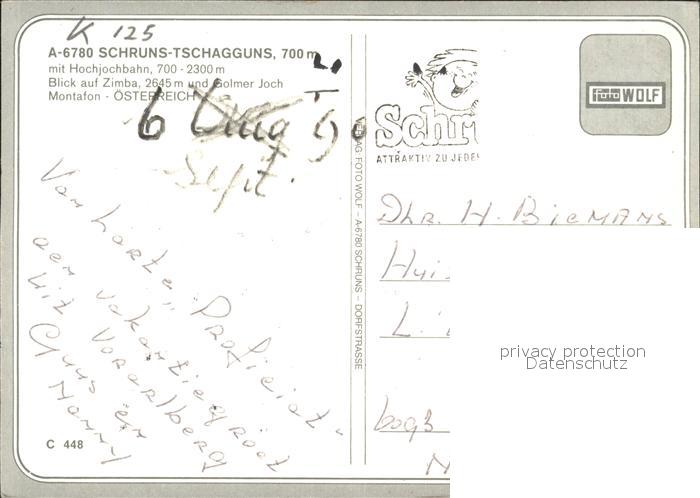 K 125
A-6780 SCHRUNS-TSCHAGGUNS, 700 m
mit Hochjochbahn, 700 - 2300 m
Blick auf Zimba, 2645 m und Golmer Joch
Montafon - ÖSTERREICH
6
Sept.
Van harte "Proficiat"
en vakantiegroet
uit Vorarlberg
Guus en
Nanny
C 448
VERLAG FOTO WOLF – A-6780 SCHRUNS – DORFSTRASSE
Schr
ATTRAKTIV ZU JEDE
foto WOLF
Dhr. H. Biemans
Hui
L.
privacy protection
Datenschutz